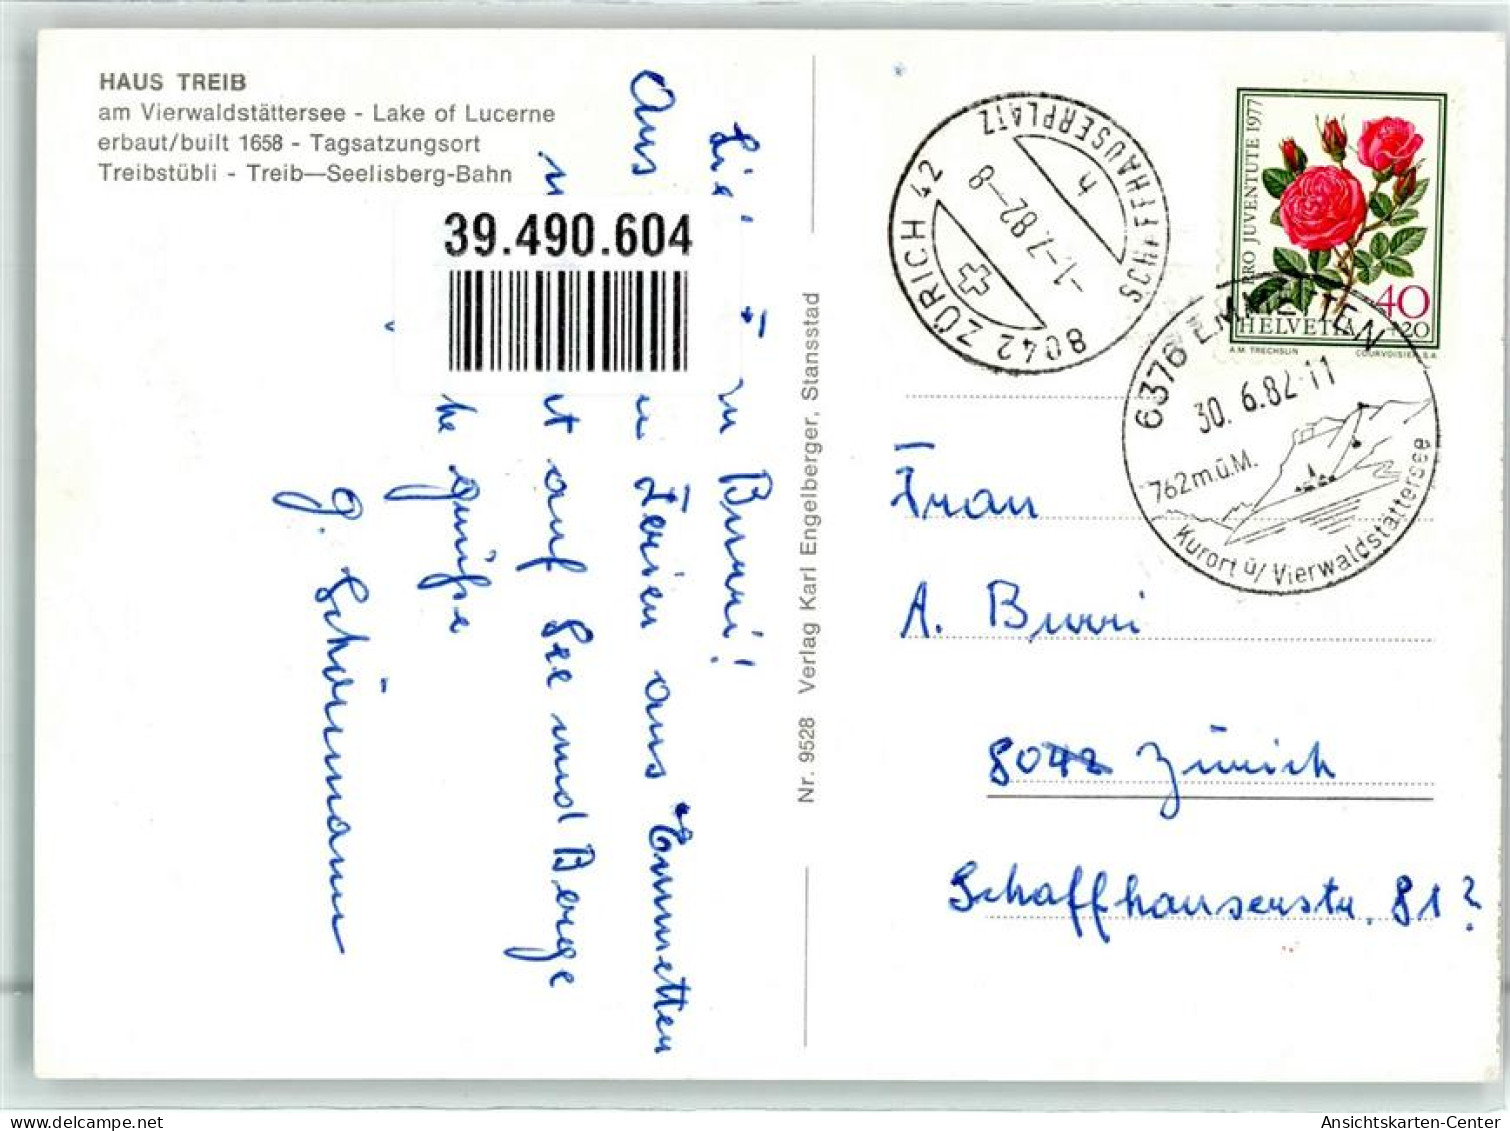 HAUS TREIB
am Vierwaldstättersee - Lake of Lucerne
erbaut/built 1658 - Tagsatzungsort
Treibstübli - Treib—Seelisberg-Bahn
39.490.604
Burri!
Aus Ferien aus Emmetten
auf See und Berge
grüsse
G. Schöinmann
Nr. 9528 Verlag Karl Engelberger, Stansstad
8042 ZÜRICH 42
SCHAFFHAUSERPLATZ
-1.-7.82-8
h
PRO JUVENTUTE 1977
40
+20
HELVETIA
A.M. TRECHSLIN COURVOISIER S.A.
6376 EMMETTEN
30.6.82-11
762 m.ü.M.
Kurort ü/ Vierwaldstättersee
Frau
A. Burri
8042 Zürich
Schaffhauserstr. 81?
Ansichtskarten-Center